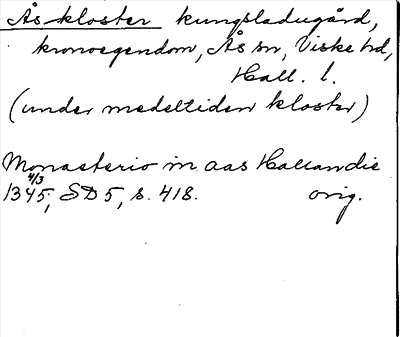 Ås kloster kungsladugård,
kronoegendom, Ås sn, Viske hd,
Hall. l.
(under medeltiden kloster)
Monasterio in aas Hallandie
1345 4/3, SD 5, s. 418. orig.